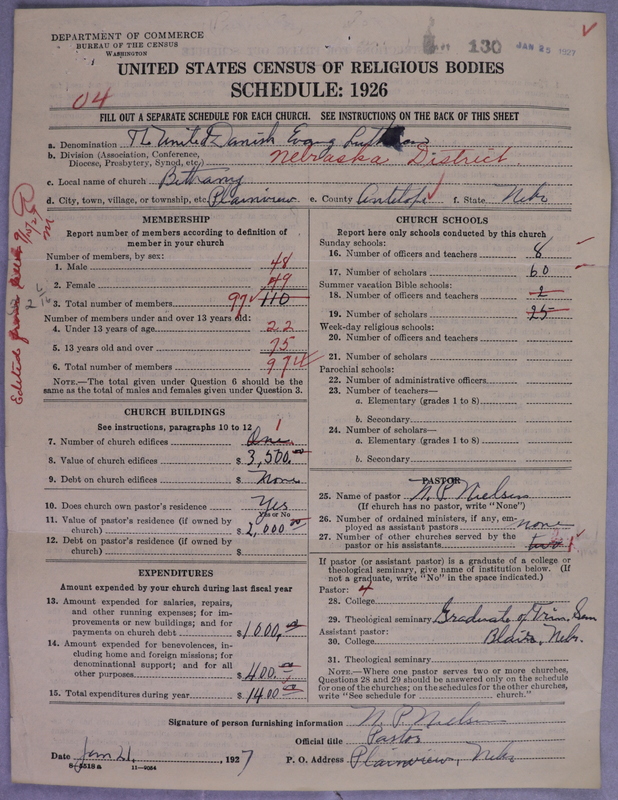 DEPARTMENT OF COMMERCE
BUREAU OF THE CENSUS
WASHINGTON
130 JAN 25 1927
UNITED STATES CENSUS OF RELIGIOUS BODIES
SCHEDULE: 1926
04
FILL OUT A SEPARATE SCHEDULE FOR EACH CHURCH. SEE INSTRUCTIONS ON THE BACK OF THIS SHEET
a. Denomination The United Danish Evang Lutheran
b. Division (Association, Conference, Diocese, Presbytery, Synod, etc.) Nebraska District
c. Local name of church Bethany
d. City, town, village, or township, etc. Plainview e. County Antelope f. State Nebr
MEMBERSHIP
Report number of members according to definition of
member in your church
Number of members, by sex:
1. Male 48
2. Female 49
3. Total number of members 97 110
Number of members under and over 13 years old:
4. Under 13 years of age 22
5. 13 years old and over 75
6. Total number of members 97
NOTE.—The total given under Question 6 should be the
same as the total of males and females given under Question 3.
CHURCH BUILDINGS
See instructions, paragraphs 10 to 12
7. Number of church edifices One 1
8. Value of church edifices $ 3,500.00
9. Debt on church edifices $ None
10. Does church own pastor's residence Yes
Yes or No
11. Value of pastor's residence (if owned by
church) $ 2,000 00
12. Debt on pastor's residence (if owned by
church) $
EXPENDITURES
Amount expended by your church during last fiscal year
13. Amount expended for salaries, repairs,
and other running expenses; for im-
provements or new buildings; and for
payments on church debt $ 1000.00
14. Amount expended for benevolences, in-
cluding home and foreign missions; for
denominational support; and for all
other purposes $ 400.00
15. Total expenditures during year $ 1400.00
CHURCH SCHOOLS
Report here only schools conducted by this church
Sunday schools:
16. Number of officers and teachers 8
17. Number of scholars 60
Summer vacation Bible schools:
18. Number of officers and teachers 2
19. Number of scholars 25
Week-day religious schools:
20. Number of officers and teachers
21. Number of scholars
Parochial schools:
22. Number of administrative officers
23. Number of teachers—
a. Elementary (grades 1 to 8)
b. Secondary
24. Number of scholars—
a. Elementary (grades 1 to 8)
b. Secondary
PASTOR
25. Name of pastor N. P. Nielsen
(If church has no pastor, write "None")
26. Number of ordained ministers, if any, em-
ployed as assistant pastors none
27. Number of other churches served by the
pastor or his assistants two 1
If pastor (or assistant pastor) is a graduate of a college or
theological seminary, give name of institution below. (If
not a graduate, write "No" in the space indicated.)
Pastor: 4
28. College
29. Theological seminary Graduate of Trin. Sem
Assistant pastor:
30. College Blair, Nebr.
31. Theological seminary
NOTE.—Where one pastor serves two or more churches,
Questions 28 and 29 should be answered only on the schedule
for one of the churches; on the schedules for the other churches,
write "See schedule for church."
Signature of person furnishing information N. P. Nielsen
Official title Pastor
Date Jan 21, 1927 P. O. Address Plainview, Nebr
8-5518 a 11-9054